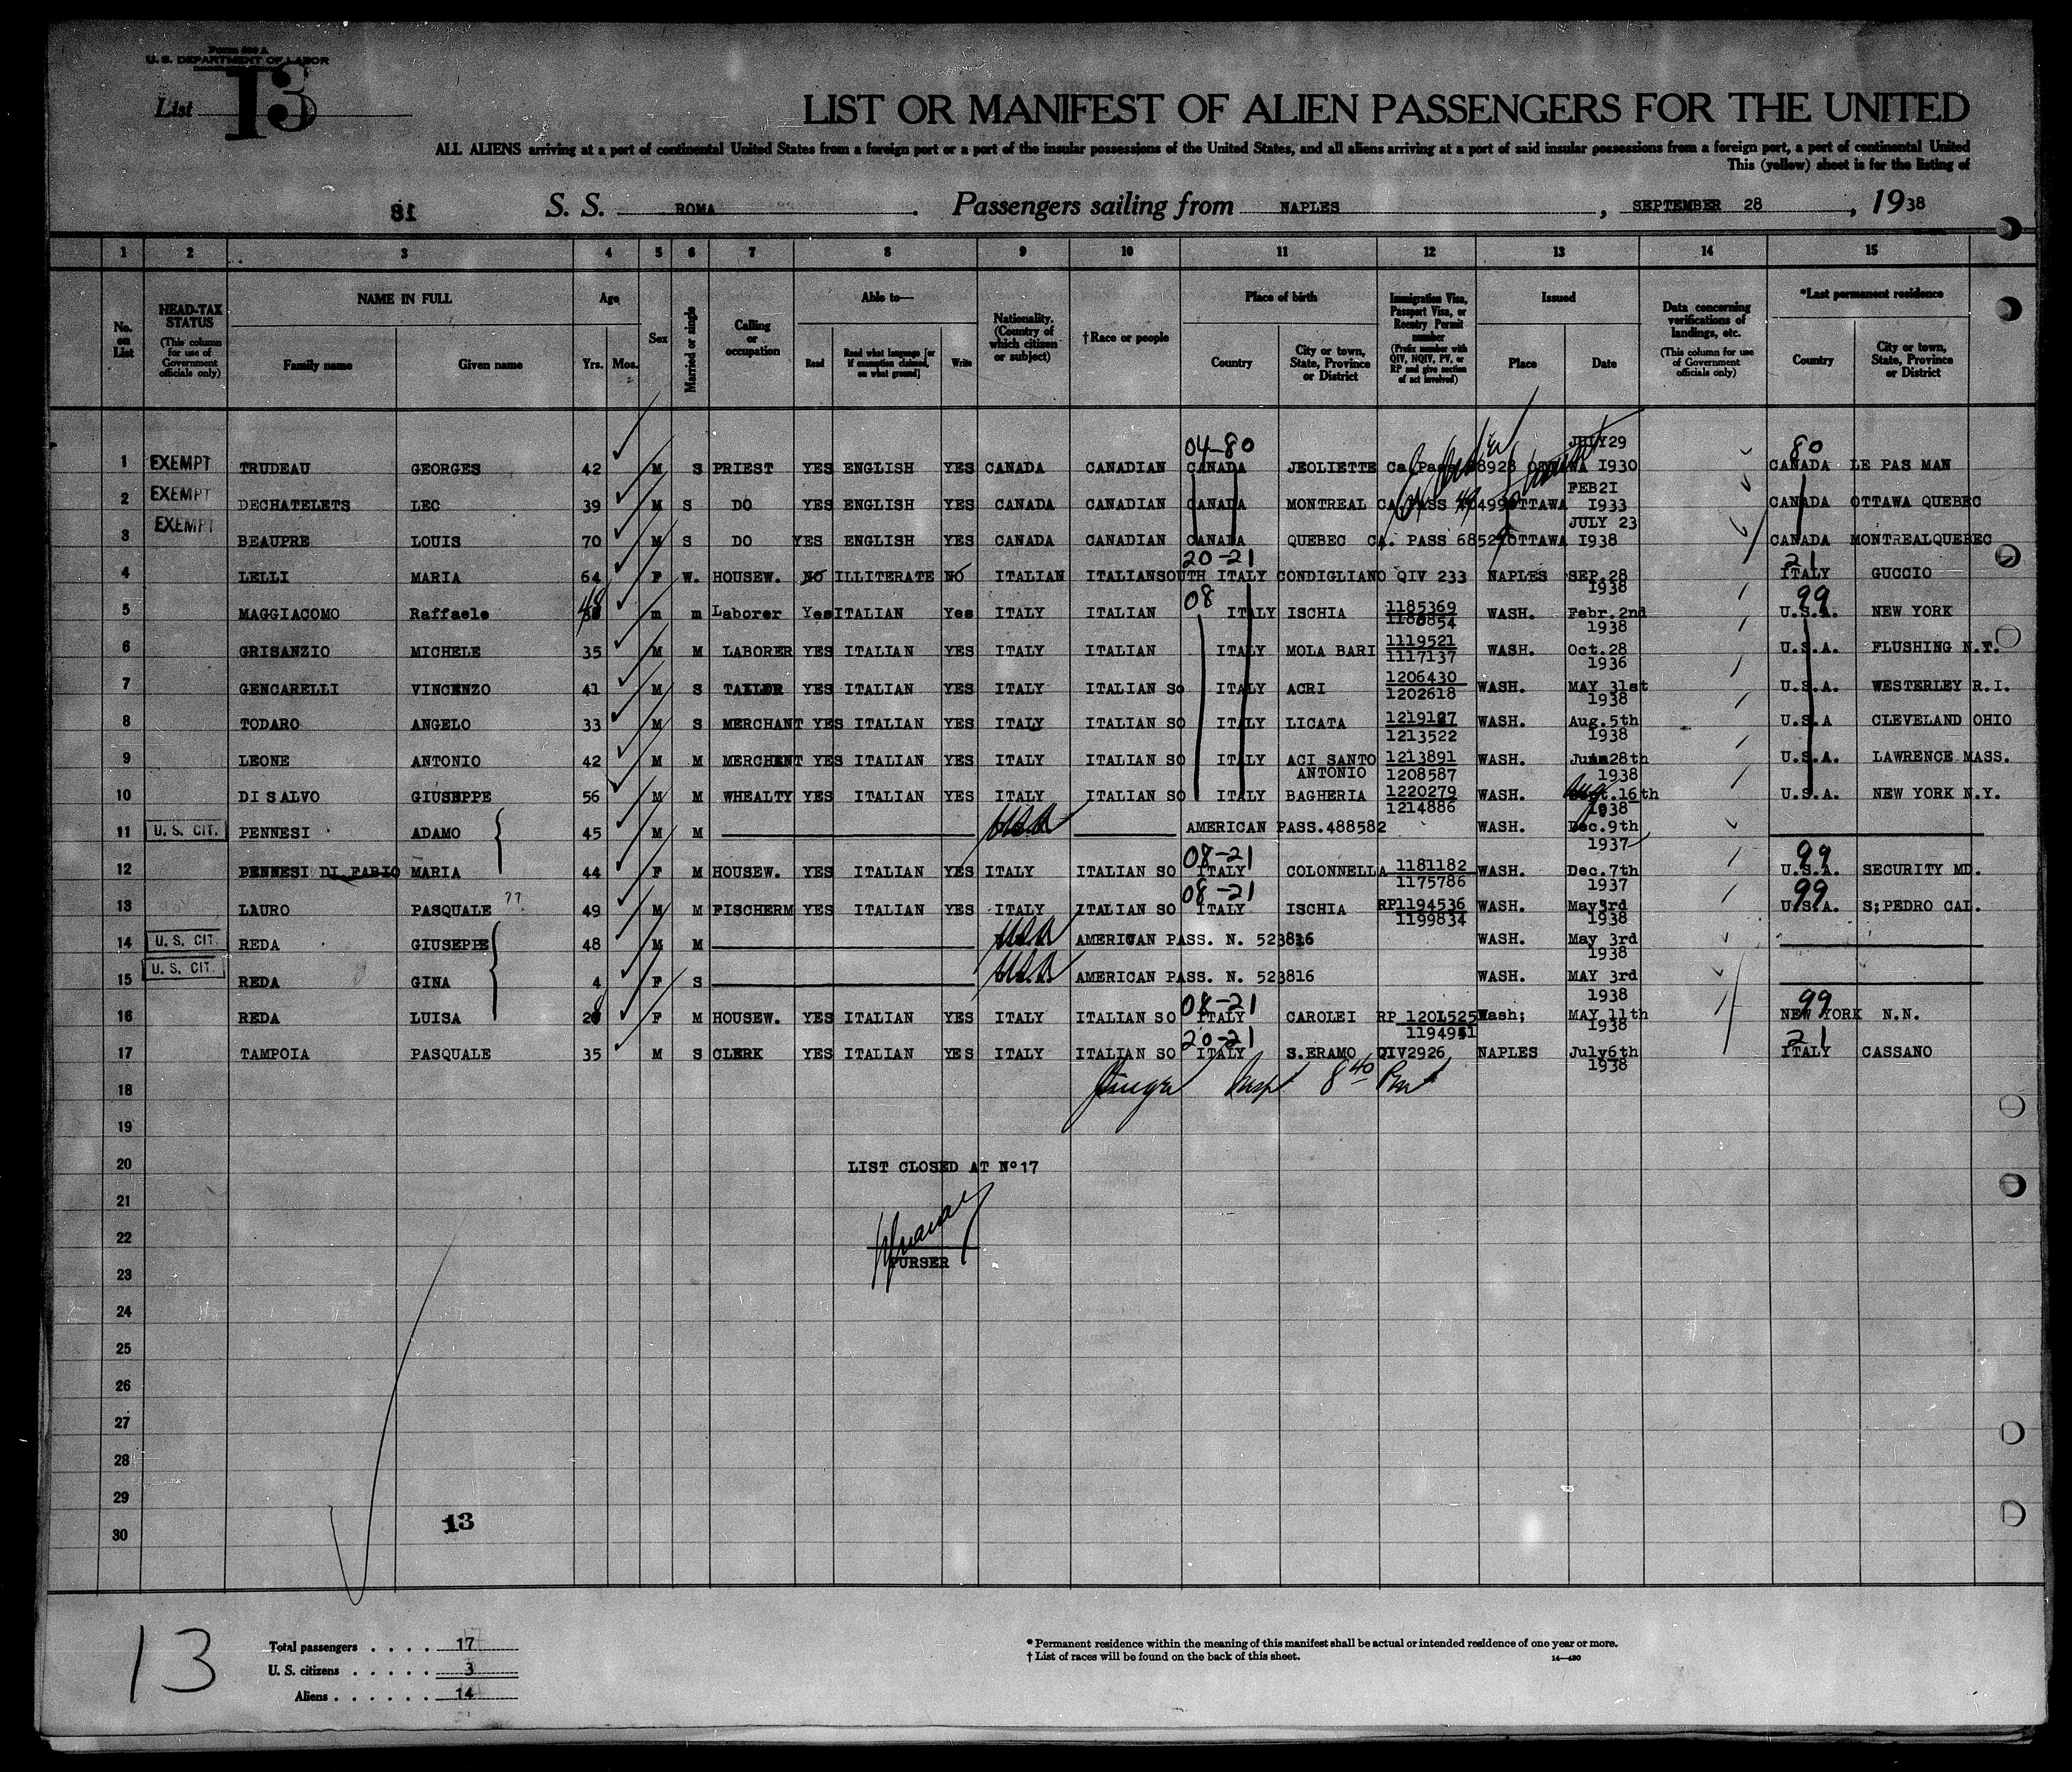 Form 500 A
U. S. DEPARTMENT OF LABOR
List 13
LIST OR MANIFEST OF ALIEN PASSENGERS FOR THE UNITED
ALL ALIENS arriving at a port of continental United States from a foreign port or a port of the insular possessions of the United States, and all aliens arriving at a port of said insular possessions from a foreign port, a port of continental United
This (yellow) sheet is for the listing of
S. S. ROMA. Passengers sailing from NAPLES, SEPTEMBER 28, 1938
1 2 3 4 5 6 7 8 9 10 11 12 13 14 15
No. on List
HEAD-TAX STATUS (This column for use of Government officials only)
NAME IN FULL
Family name Given name
Age
Yrs. Mos.
Sex
Married or single
Calling or occupation
Able to—
Read Read what language [or if exemption claimed, on what ground] Write
Nationality. (Country of which citizen or subject)
†Race or people
Place of birth
Country City or town, State, Province or District
Immigration Visa, Passport Visa, or Reentry Permit number (Prefix number with QIV, NQIV, PV, or RP and give section of act involved)
Issued
Place Date
Data concerning verifications of landings, etc. (This column for use of Government officials only)
*Last permanent residence
Country City or town, State, Province or District
04-80 JULY 29 80
1 EXEMPT TRUDEAU GEORGES 42 M S PRIEST YES ENGLISH YES CANADA CANADIAN CANADA JEOLIETTE Ca Pass 8928 OTTAWA 1930 CANADA LE PAS MAN
FEB 21
2 EXEMPT DECHATELETS LEO 39 M S DO YES ENGLISH YES CANADA CANADIAN CANADA MONTREAL CA. PASS OTTAWA 1933 CANADA OTTAWA QUEBEC
JULY 23
3 EXEMPT BEAUPRE LOUIS 70 M S DO YES ENGLISH YES CANADA CANADIAN CANADA QUEBEC CA. PASS 68527 OTTAWA 1938 CANADA MONTREAL QUEBEC
20-21 21
4 LELLI MARIA 64 F W. HOUSEW. NO ILLITERATE NO ITALIAN ITALIAN SOUTH ITALY CONDIGLIANO QIV 233 NAPLES SEP. 28 1938 ITALY GUCCIO
48 08 99
5 MAGGIACOMO Raffaele m m Laborer Yes ITALIAN Yes ITALY ITALIAN ITALY ISCHIA 1185369 1188854 WASH. Febr. 2nd 1938 U.S.A. NEW YORK
6 GRISANZIO MICHELE 35 M M LABORER YES ITALIAN YES ITALY ITALIAN ITALY MOLA BARI 1119521 1117137 WASH. Oct. 28 1936 U.S.A. FLUSHING N.Y.
7 GENCARELLI VINCENZO 41 M S TAILOR YES ITALIAN YES ITALY ITALIAN SO ITALY ACRI 1206430 1202618 WASH. MAY 31st 1938 U.S.A. WESTERLEY R.I.
8 TODARO ANGELO 33 M S MERCHANT YES ITALIAN YES ITALY ITALIAN SO ITALY LICATA 1219127 1213522 WASH. Aug. 5th 1938 U.S.A CLEVELAND OHIO
9 LEONE ANTONIO 42 M M MERCHENT YES ITALIAN YES ITALY ITALIAN SO ITALY ACI SANTO ANTONIO 1213891 1208587 WASH. June 28th 1938 U.S.A. LAWRENCE MASS.
10 DI SALVO GIUSEPPE 56 M M WHEALTY YES ITALIAN YES ITALY ITALIAN SO ITALY BAGHERIA 1220279 1214886 WASH. Aug. 16th 1938 U.S.A. NEW YORK N.Y.
11 U. S. CIT. PENNESI ADAMO 45 M M USA AMERICAN PASS. 488582 WASH. Dec. 9th 1937
08-21 99
12 PENNESI DI FABIO MARIA 44 F M HOUSEW. YES ITALIAN YES ITALY ITALIAN SO ITALY COLONNELLA 1181182 1175786 WASH. Dec. 7th 1937 U.S.A. SECURITY MD.
08-21 99
13 LAURO PASQUALE ?? 49 M M FISCHERM YES ITALIAN YES ITALY ITALIAN SO ITALY ISCHIA RP1194536 1199834 WASH. May 3rd 1938 U.S.A. S;PEDRO CAL.
14 U. S. CIT. REDA GIUSEPPE 48 M M USA AMERICAN PASS. N. 523816 WASH. May 3rd 1938
15 U. S. CIT. REDA GINA 4 F S U.S.A. AMERICAN PASS. N. 523816 WASH. MAY 3rd 1938
08-21 99
16 REDA LUISA 28 F M HOUSEW. YES ITALIAN YES ITALY ITALIAN SO ITALY CAROLEI RP 1201525 1194951 Wash; MAY 11th 1938 NEW YORK N.N.
20-21 21
17 TAMPOIA PASQUALE 35 M S CLERK YES ITALIAN YES ITALY ITALIAN SO ITALY S.ERAMO QIV2926 NAPLES July 6th 1938 ITALY CASSANO
18
19
20 LIST CLOSED AT Nº 17
21
22
PURSER
23
24
25
26
27
28
29
13
30
13
Total passengers . . . . 17
U. S. citizens . . . . . 3
Aliens . . . . . . 14
* Permanent residence within the meaning of this manifest shall be actual or intended residence of one year or more.
† List of races will be found on the back of this sheet. 14—430